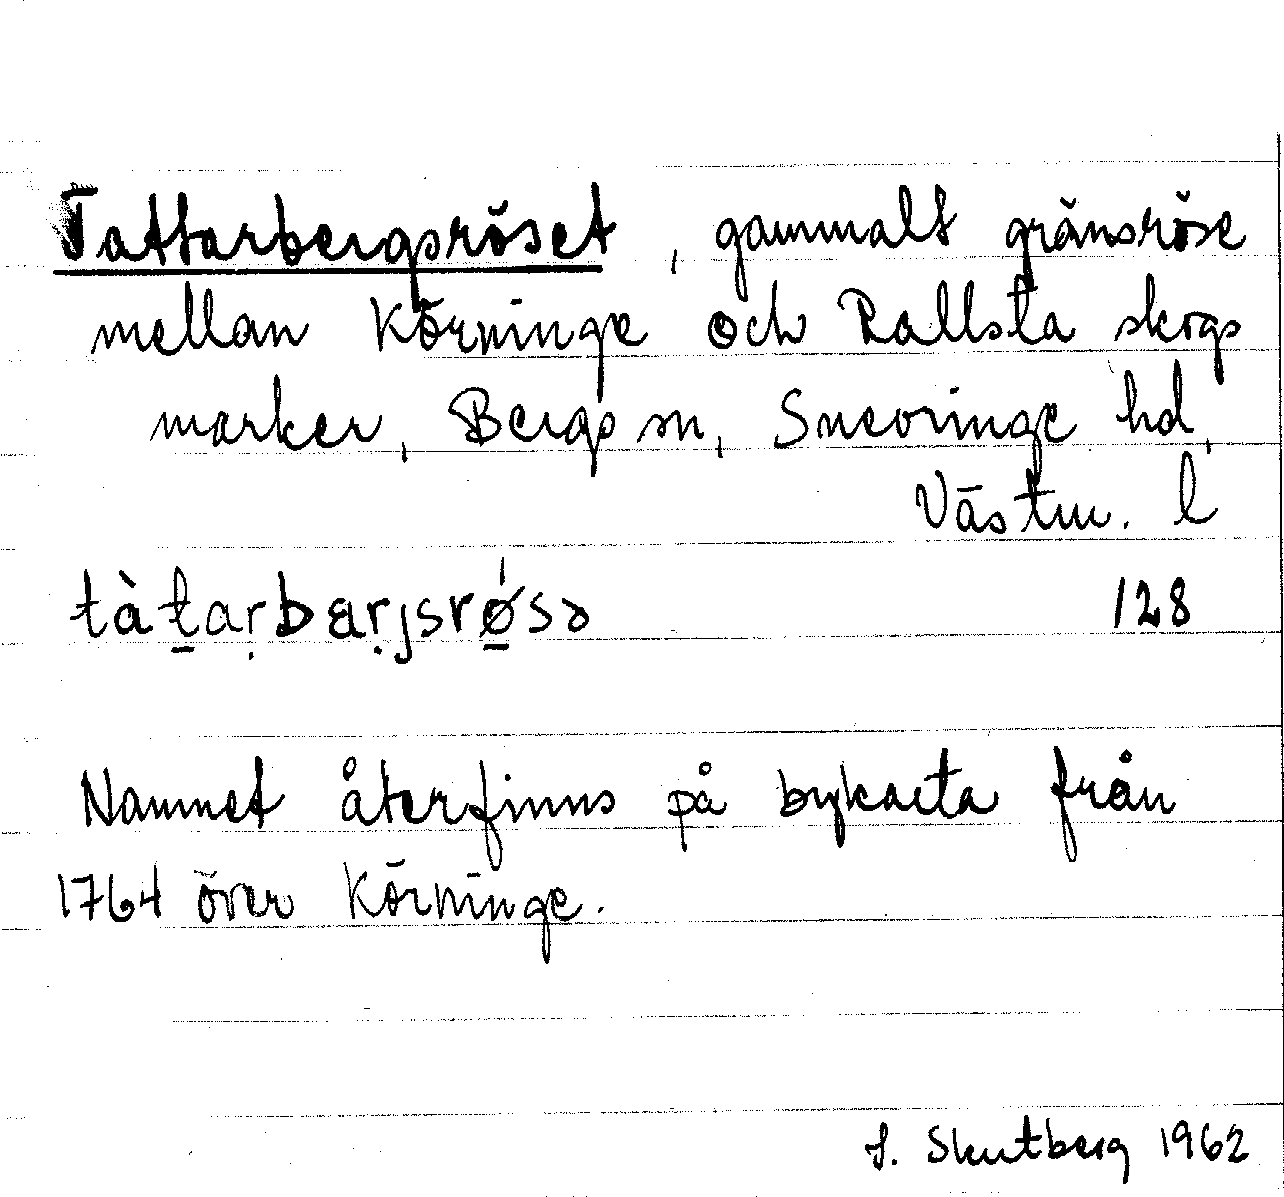 Tattarbergsröset, gammalt gränsröse
mellan Körninge och Rallsta skogs
marker, Bergs sn, Snevringe hd,
Västm. l
tàt̠arbarjsrǿ̠sə 128
Namnet återfinns på bykarta från
1764 över Körninge.
J. Skutberg 1962